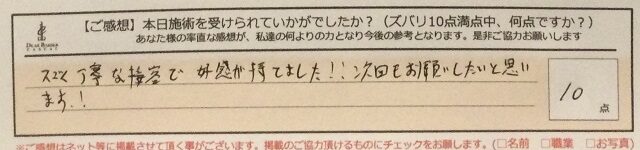 【ご感想】本日施術を受けられていかがでしたか？（ズバリ10点満点中、何点ですか？）
あなた様の率直な感想が、私達の何よりの力となり今後の参考となります。是非ご協力お願いします
丁寧な接客で 好感が持てました!! 次回もお願いしたいと思い
ます!!
10
点
※ご感想はネット等に掲載させて頂く事がございます。掲載のご協力頂けるものにチェックをお願します。（□名前 □職業 □お写真）